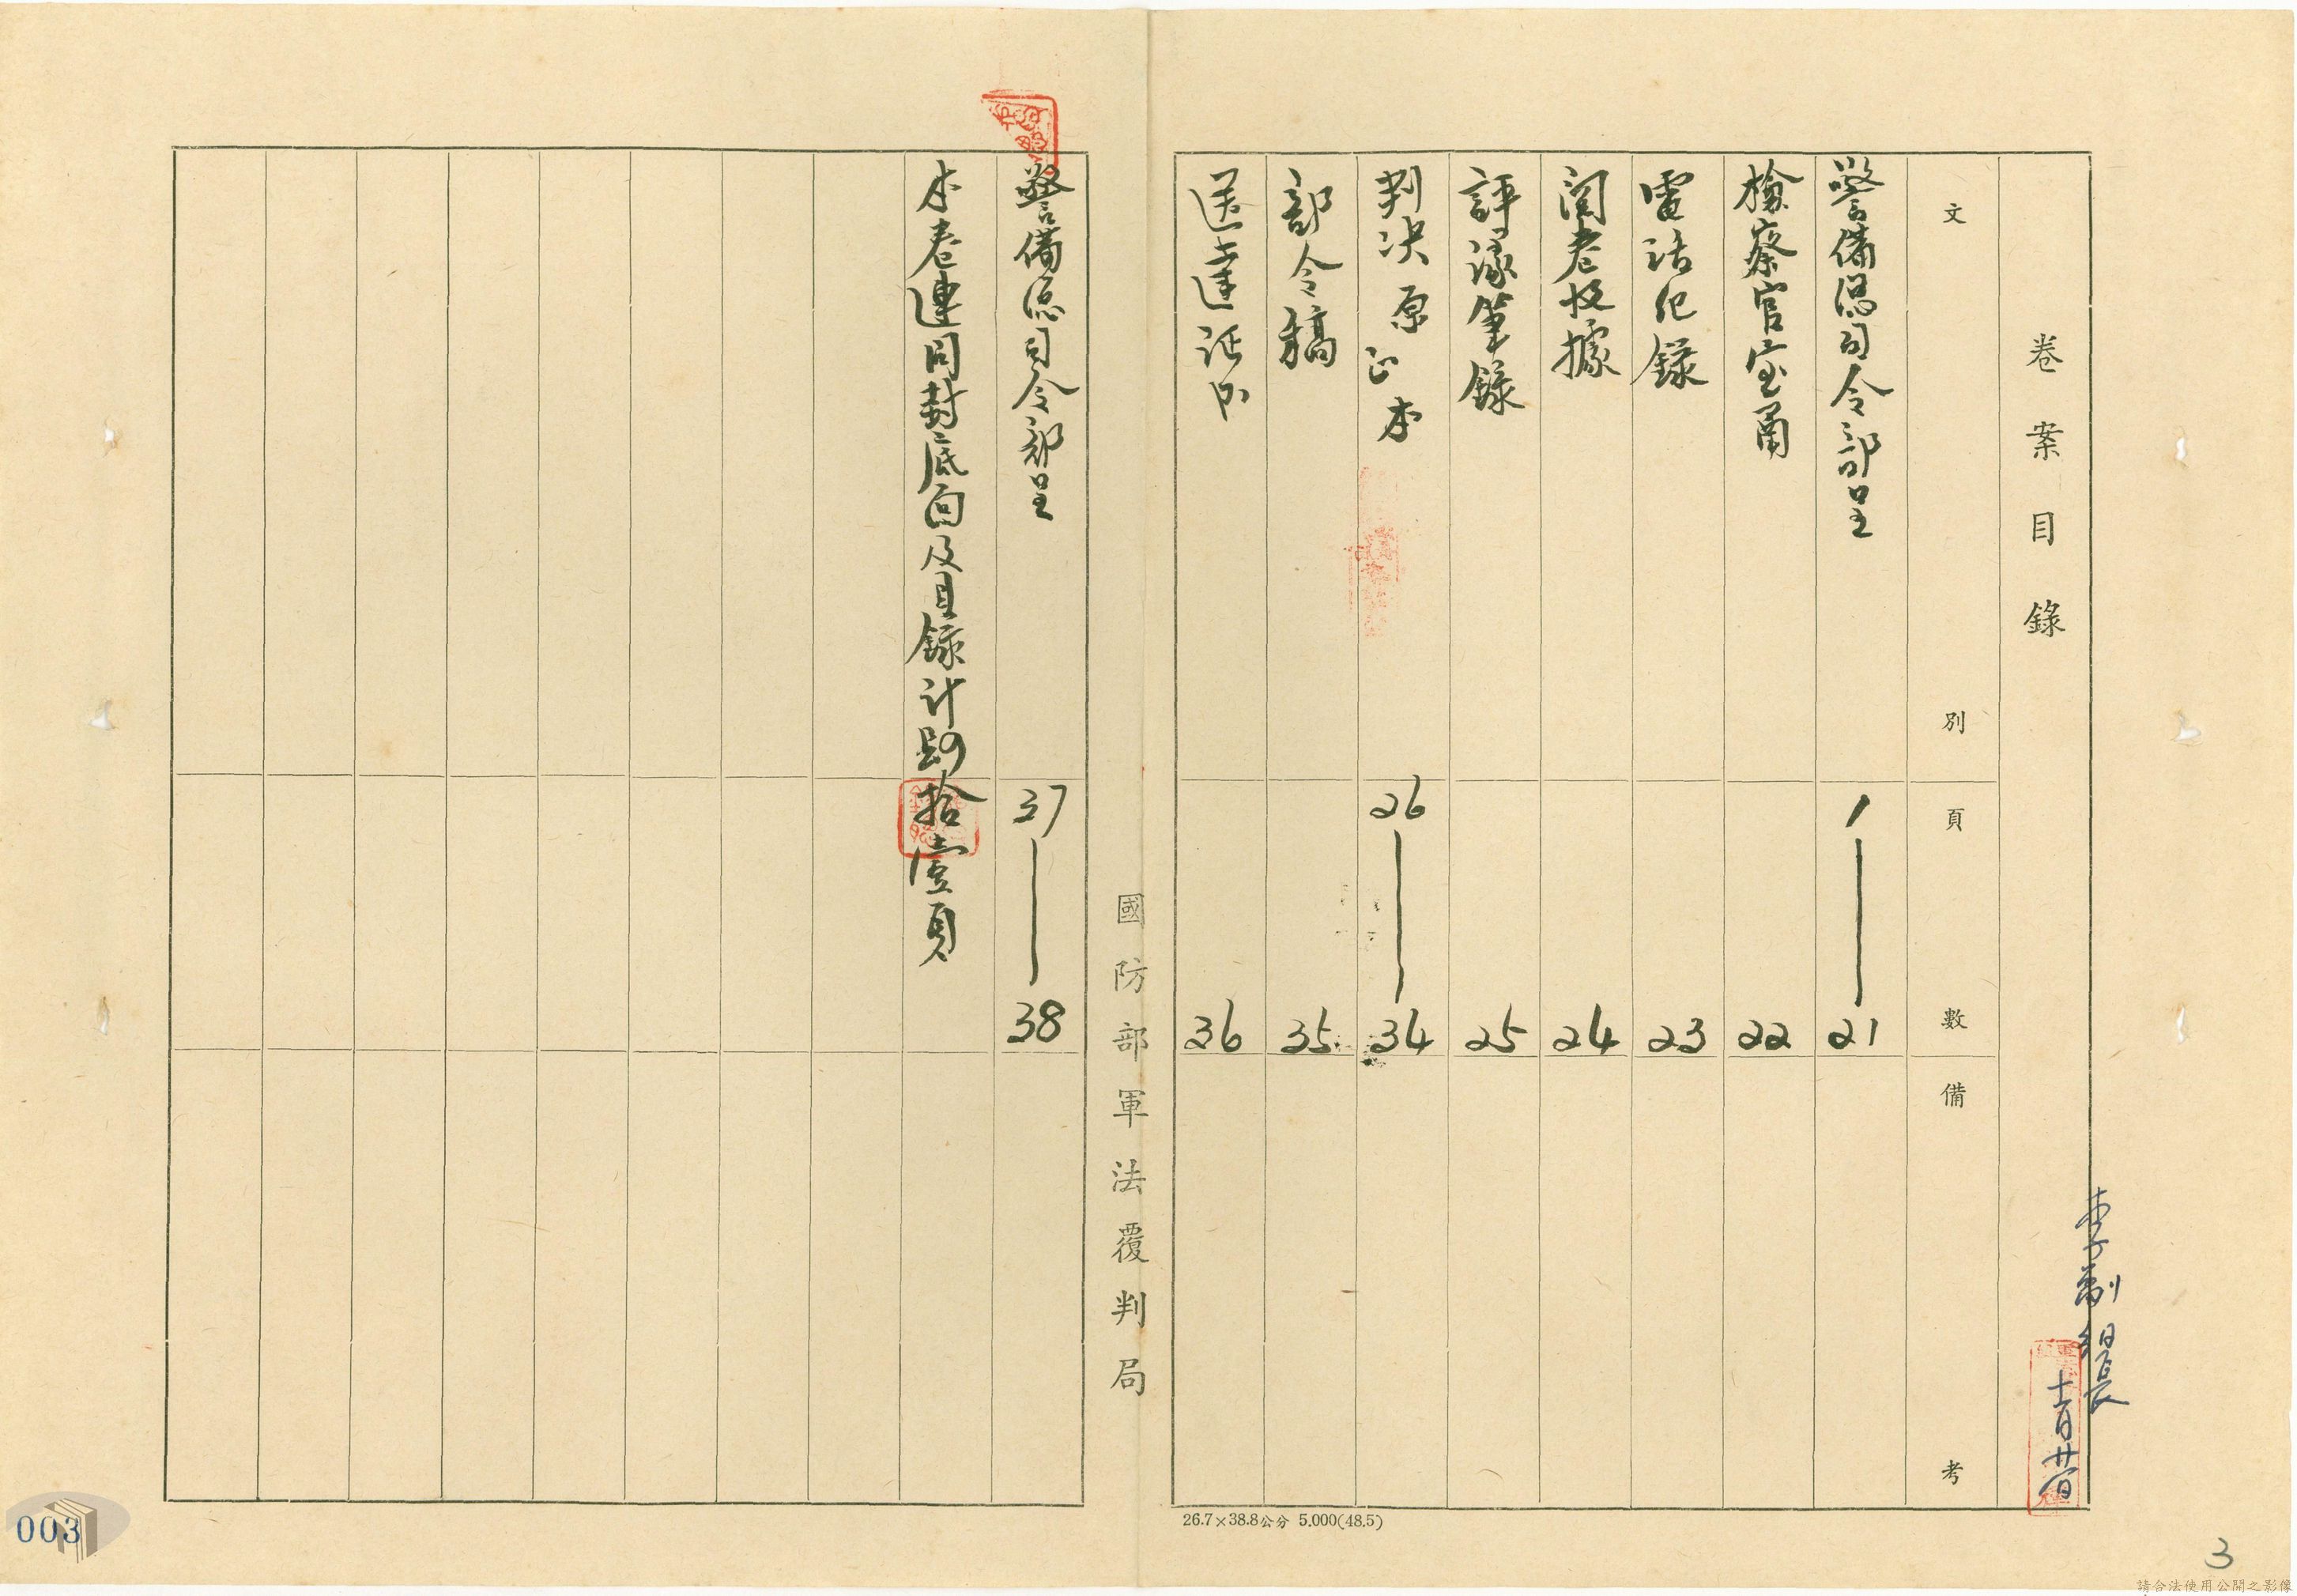 卷案目錄
文別
頁數
備考
警備總司令部呈
1—21
檢察官室電
22
電話紀錄
23
閱卷收據
24
評議筆錄
25
判决原正本
26—34
部令稿
35
送達證書
36
國防部軍法覆判局
警備總司令部呈
37—38
本卷連同封底面及目錄計肆拾壹頁
李副組長
26.7×38.8公分 5.000(48.5)
3
003
請合法使用公開之影像